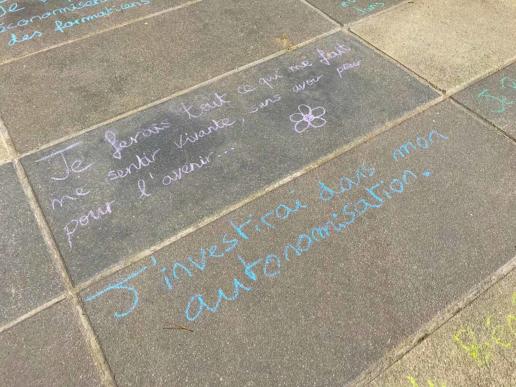 Je
économiserai
des formations
Je ferais tout ce qui me fait
me sentir vivante, sans avoir peur
pour l'avenir...
J'investirai dans mon
autonomisation.